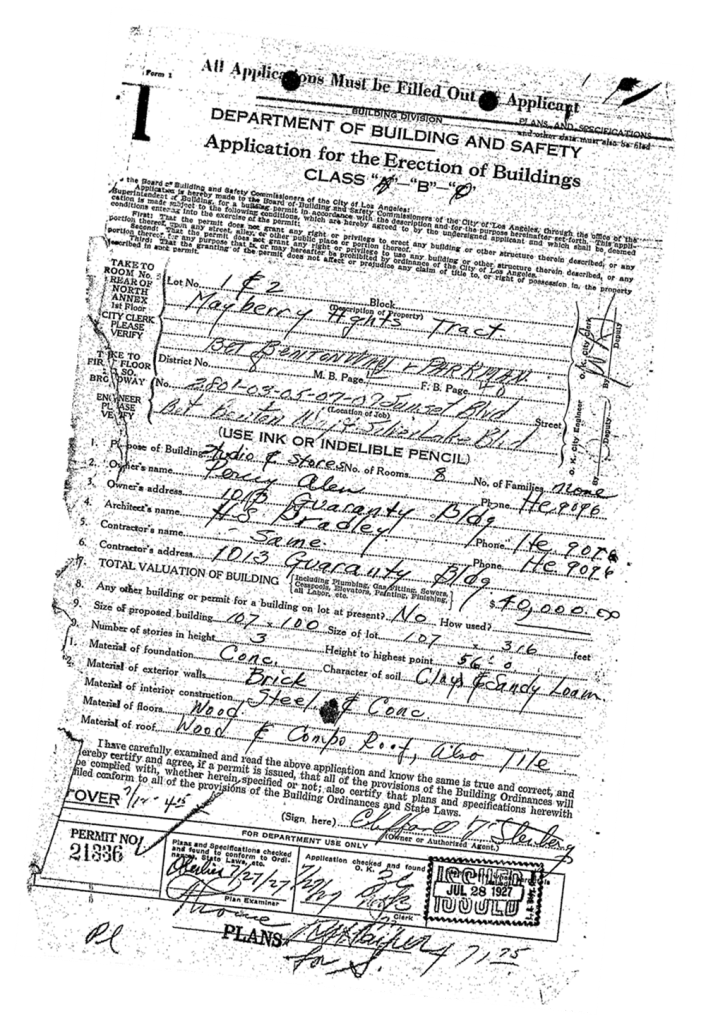 Form 1
All Applications Must be Filled Out by Applicant
1
BUILDING DIVISION
PLANS AND SPECIFICATIONS
and other data must also be filed
DEPARTMENT OF BUILDING AND SAFETY
Application for the Erection of Buildings
CLASS "A"—"B"—"C"
the Board of Building and Safety Commissioners of the City of Los Angeles:
Application is hereby made to the Board of Building and Safety Commissioners of the City of Los Angeles, through the office of the
Superintendent of Building, for a building permit in accordance with the description and for the purpose hereinafter set forth. This appli-
cation is made subject to the following conditions, which are hereby agreed to by the undersigned applicant and which shall be deemed
conditions entering into the exercise of the permit:
First: That the permit does not grant any right or privilege to erect any building or other structure therein described, or any
portion thereof, upon any street, alley, or other public place or portion thereof.
Second: That the permit does not grant any right or privilege to use any building or other structure therein described, or any
portion thereof, for any purpose that is, or may hereafter be prohibited by ordinance of the City of Los Angeles.
Third: That the granting of the permit does not affect or prejudice any claim of title to, or right of possession in, the property
described in such permit.
TAKE TO
ROOM No.
REAR OF
NORTH
ANNEX
1st Floor
CITY CLERK
PLEASE
VERIFY
Lot No. 1 & 2
Block
(Description of Property)
Mayberry Hghts Tract
Bet Benton Way & Parkman
District No. M. B. Page F. B. Page
TAKE TO
FIRST FLOOR
SO.
BROADWAY
ENGINEER
PLEASE
VERIFY
No. 2801-03-05-07-09 Sunset Blvd Street
(Location of Job)
Bet Benton Way & Silver Lake Blvd
O. K. City Clerk
By Deputy
O. K. City Engineer
By Deputy
(USE INK OR INDELIBLE PENCIL)
1. Purpose of Building Studio & Stores No. of Rooms 8 No. of Families none
2. Owner's name Percy Alen Phone He. 9096
3. Owner's address 1013 Guaranty Bldg
4. Architect's name H.S. Bradley Phone He. 9096
5. Contractor's name Same. Phone He 9096
6. Contractor's address 1013 Guaranty Bldg
7. TOTAL VALUATION OF BUILDING {Including Plumbing, Gas Fitting, Sewers, Cesspools, Elevators, Painting, Finishing, all Labor, etc.} $40,000.00
8. Any other building or permit for a building on lot at present? No How used?
9. Size of proposed building 107 x 100 Size of lot 107 x 316 feet
Number of stories in height 3 Height to highest point 56'-0
1. Material of foundation Conc. Character of soil Clay & Sandy Loam
2. Material of exterior walls Brick
Material of interior construction Steel & Conc
Material of floors Wood
Material of roof Wood & Compo Roof, Also Tile
I have carefully examined and read the above application and know the same is true and correct, and
hereby certify and agree, if a permit is issued, that all of the provisions of the Building Ordinances will
be complied with, whether herein specified or not; also certify that plans and specifications herewith
filed conform to all of the provisions of the Building Ordinances and State Laws.
OVER
(Sign here)
(Owner or Authorized Agent.)
FOR DEPARTMENT USE ONLY
PERMIT NO.
21336
Plans and Specifications checked
and found to conform to Ordi-
nances, State Laws, etc.
7/27/27
Plan Examiner
Application checked and found
O. K.
Clerk
ISSUED
JUL 28 1927
ISSUED
PLANS
71.75